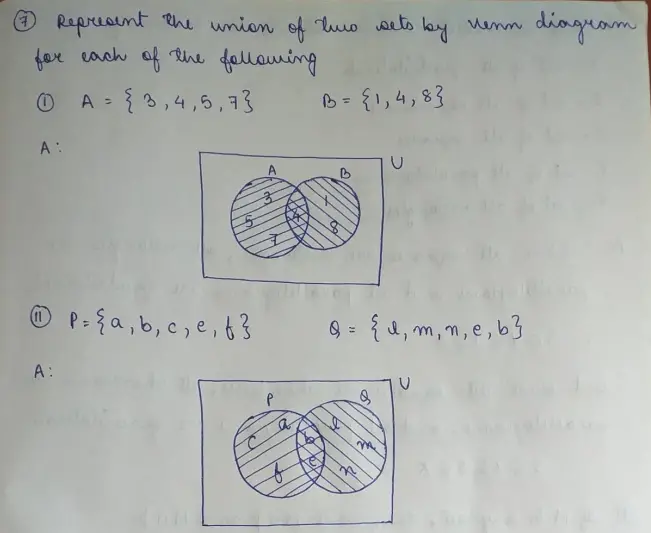 ⑦ Represent the union of two sets by venn diagram
for each of the following
ⓘ A = { 3, 4, 5, 7 } B = { 1, 4, 8 }
A:
U
A B
3 1
5 4
7 8
ⅱ P = { a, b, c, e, f } Q = { l, m, n, e, b }
A:
U
P Q
a l
c b m
e
f n